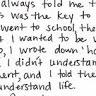 always told me t
s was the key to
went to school, the
I wanted to be w
o, I wrote down 'ho
I didn't understan
ent, and I told the
understand life.